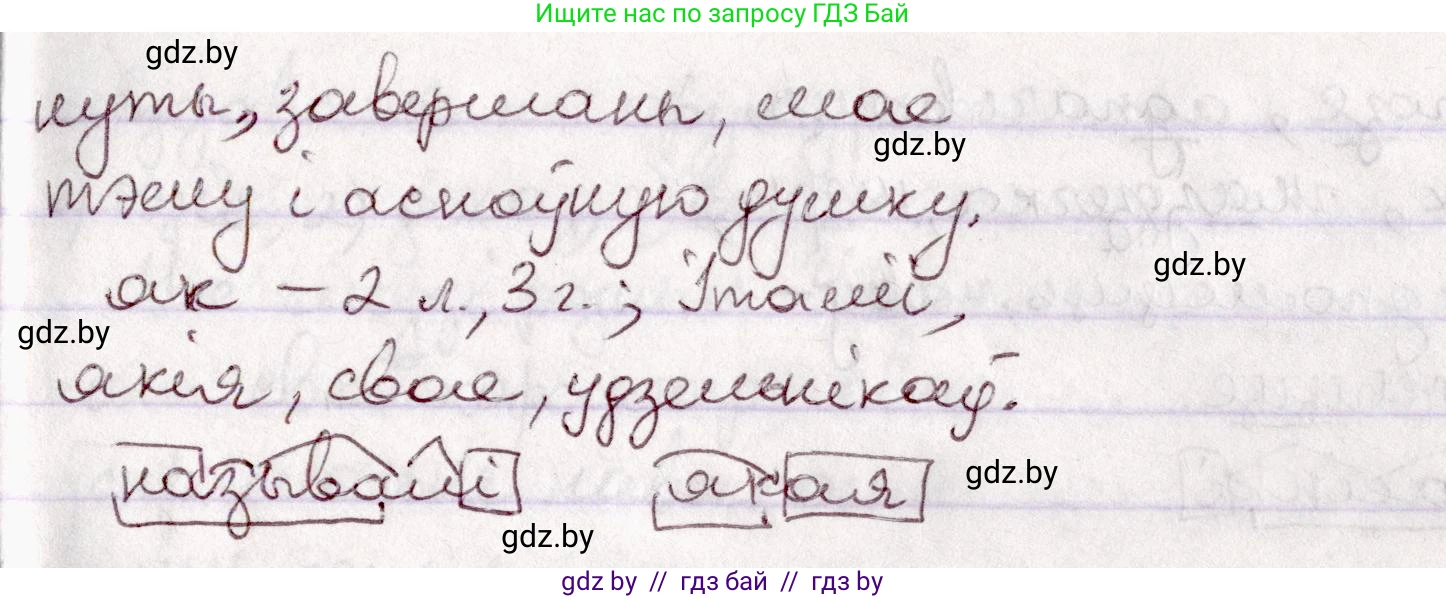 Ищите нас по запросу ГДЗ Бай
gdz.by
нуты, завершаны, мае
gdz.by
тэму і асноўную думку.
gdz.by
як – 2 л., 3 г.; Італіі,
gdz.by
якія, свае, удзельнікаў.
называлі якая
gdz.by
gdz.by
gdz.by // гдз бай // гдз by